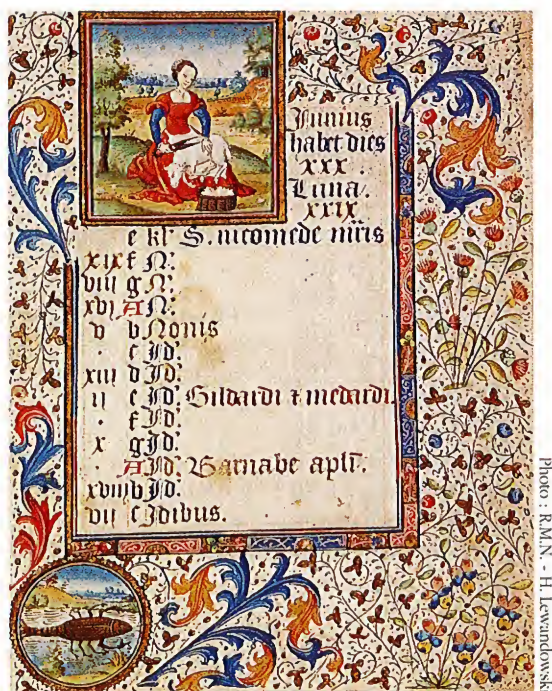 Junius
habet dies
xxx .
Luna.
xxix
e kl' S. nicomede mris
xix f N'.
viii g N'.
xvj A N'.
v b Nonis
. c Jd'.
xiii d Jd'.
ii e Jd'. Gildardi & medardi.
. f Jd'.
x g Jd'.
. A Jd'. Barnabe apli.
xviij b Jd'.
vii c Jdibus.
Photo : R.M.N. - H. Lewandowski